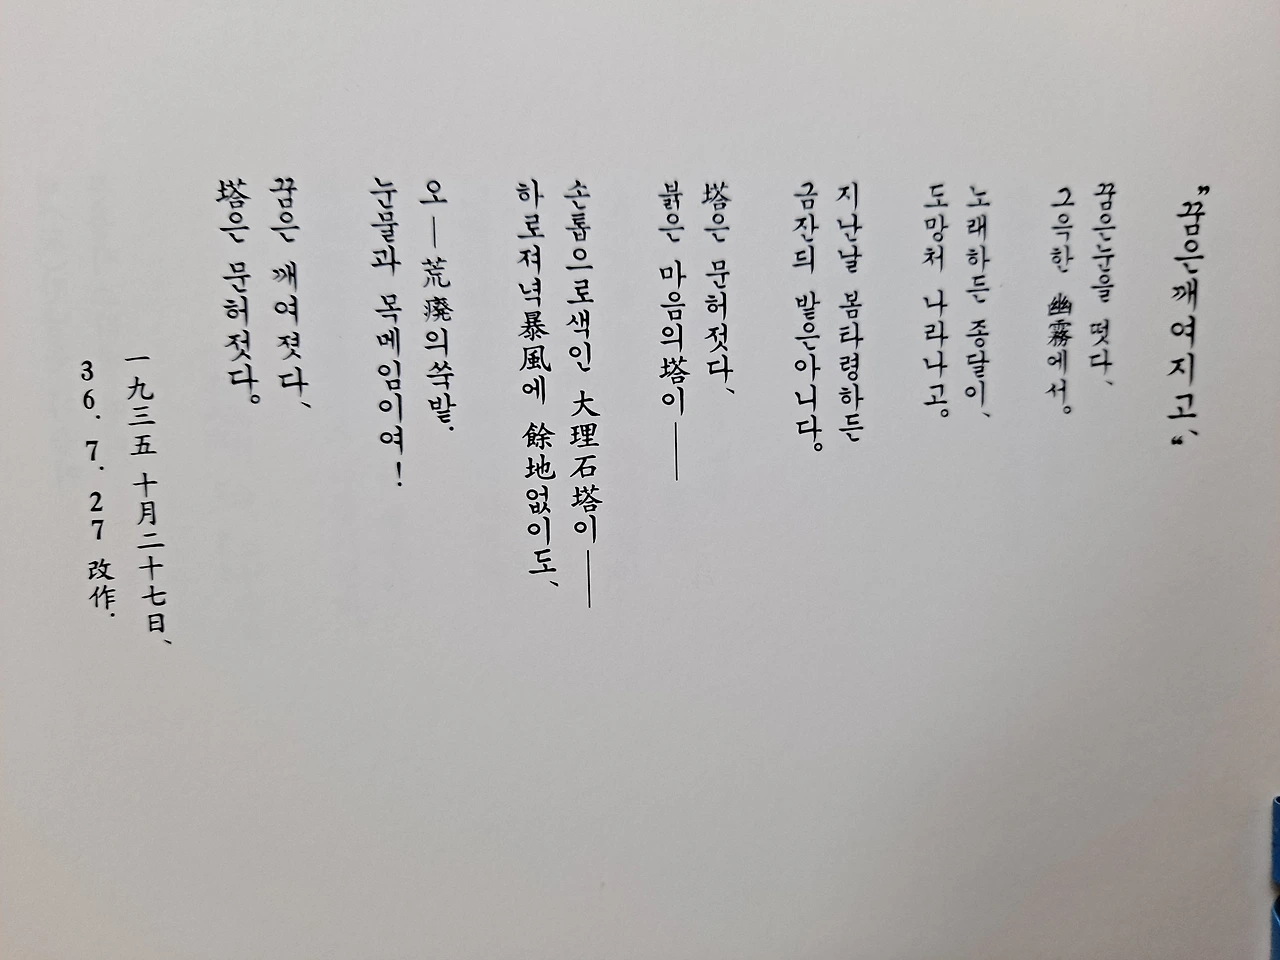 "꿈은깨여지고、"
꿈은눈을 떳다、
그윽한 幽霧에서。
노래하든 종달이、
도망처 나라나고。
지난날 봄타령하든
금잔듸 밭은아니다。
塔은 문허젓다、
붉은 마음의塔이——
손톱으로색인 大理石塔이——
하로져녁暴風에 餘地없이도、
오—荒廢의쑥밭.
눈물과 목메임이여!
꿈은 깨여젓다、
塔은 문허젓다。
一九三五 十月二十七日、
36. 7. 27 改作.